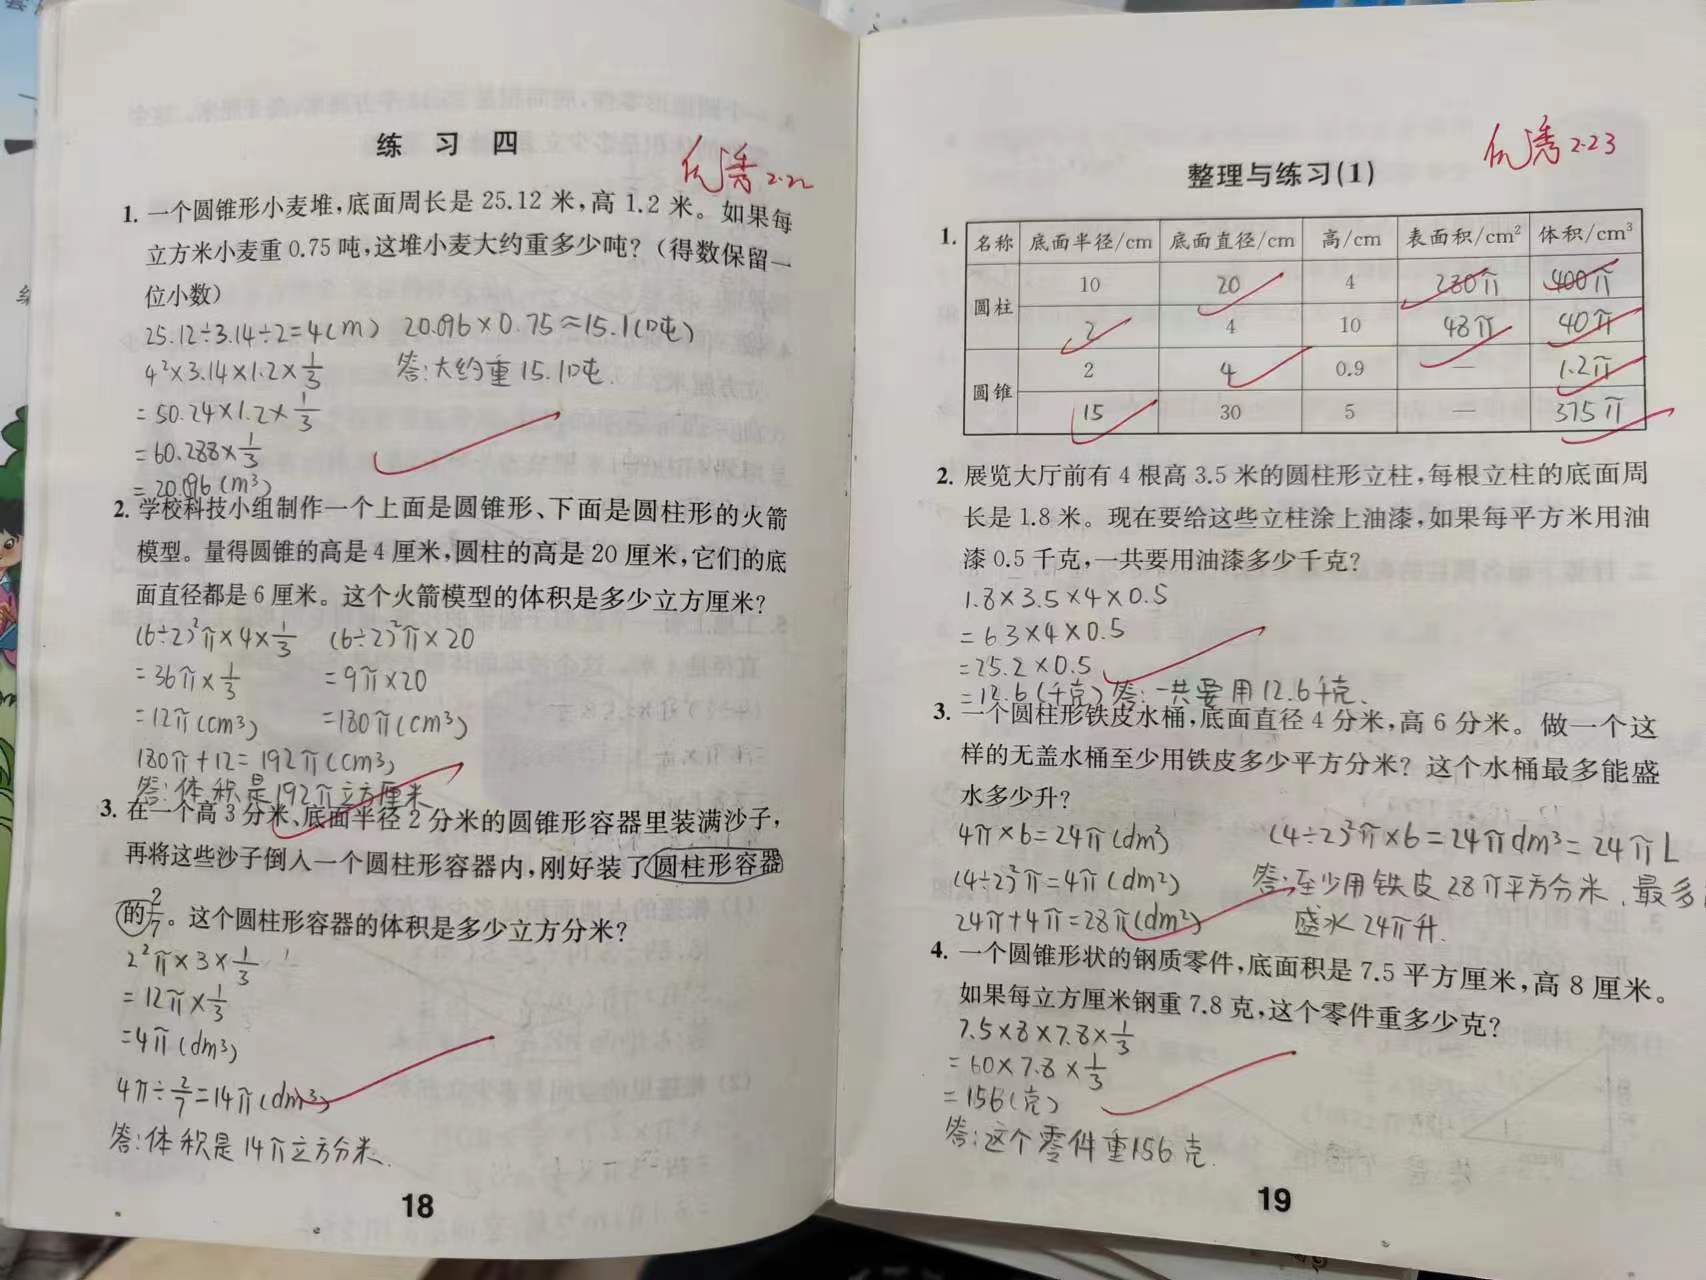 练 习 四
优秀 2.22
1. 一个圆锥形小麦堆，底面周长是 25.12 米，高 1.2 米。如果每
立方米小麦重 0.75 吨，这堆小麦大约重多少吨？（得数保留一
位小数）
25.12÷3.14÷2=4(m) 20.096×0.75≈15.1(吨)
4²×3.14×1.2×1/3 答:大约重15.1吨.
=50.24×1.2×1/3
=60.288×1/3
=20.096(m³)
2. 学校科技小组制作一个上面是圆锥形、下面是圆柱形的火箭
模型。量得圆锥的高是 4 厘米，圆柱的高是 20 厘米，它们的底
面直径都是 6 厘米。这个火箭模型的体积是多少立方厘米？
(6÷2)²π×4×1/3 (6÷2)²π×20
=36π×1/3 =9π×20
=12π(cm³) =180π(cm³)
180π+12=192π(cm³)
答:体积是192π立方厘米
3. 在一个高 3 分米、底面半径 2 分米的圆锥形容器里装满沙子，
再将这些沙子倒入一个圆柱形容器内，刚好装了圆柱形容器
的2/7。这个圆柱形容器的体积是多少立方分米？
2²π×3×1/3
=12π×1/3
=4π(dm³)
4π÷2/7=14π(dm³)
答:体积是14π立方分米.
18
整理与练习(1)
优秀 2.23
1. 名称 底面半径/cm 底面直径/cm 高/cm 表面积/cm² 体积/cm³
圆柱 10 20 4 280π 400π
2 4 10 48π 40π
圆锥 2 4 0.9 — 1.2π
15 30 5 — 375π
2. 展览大厅前有 4 根高 3.5 米的圆柱形立柱，每根立柱的底面周
长是 1.8 米。现在要给这些立柱涂上油漆，如果每平方米用油
漆 0.5 千克，一共要用油漆多少千克？
1.8×3.5×4×0.5
=6.3×4×0.5
=25.2×0.5
=12.6(千克) 答:一共要用12.6千克.
3. 一个圆柱形铁皮水桶，底面直径 4 分米，高 6 分米。做一个这
样的无盖水桶至少用铁皮多少平方分米？这个水桶最多能盛
水多少升？
4π×6=24π(dm²) (4÷2)²π×6=24πdm³=24πL
(4÷2)²π=4π(dm²) 答:至少用铁皮28π平方分米,最多
24π+4π=28π(dm²) 盛水24π升.
4. 一个圆锥形状的钢质零件，底面积是 7.5 平方厘米，高 8 厘米。
如果每立方厘米钢重 7.8 克，这个零件重多少克？
7.5×8×7.8×1/3
=60×7.8×1/3
=156(克)
答:这个零件重156克.
19